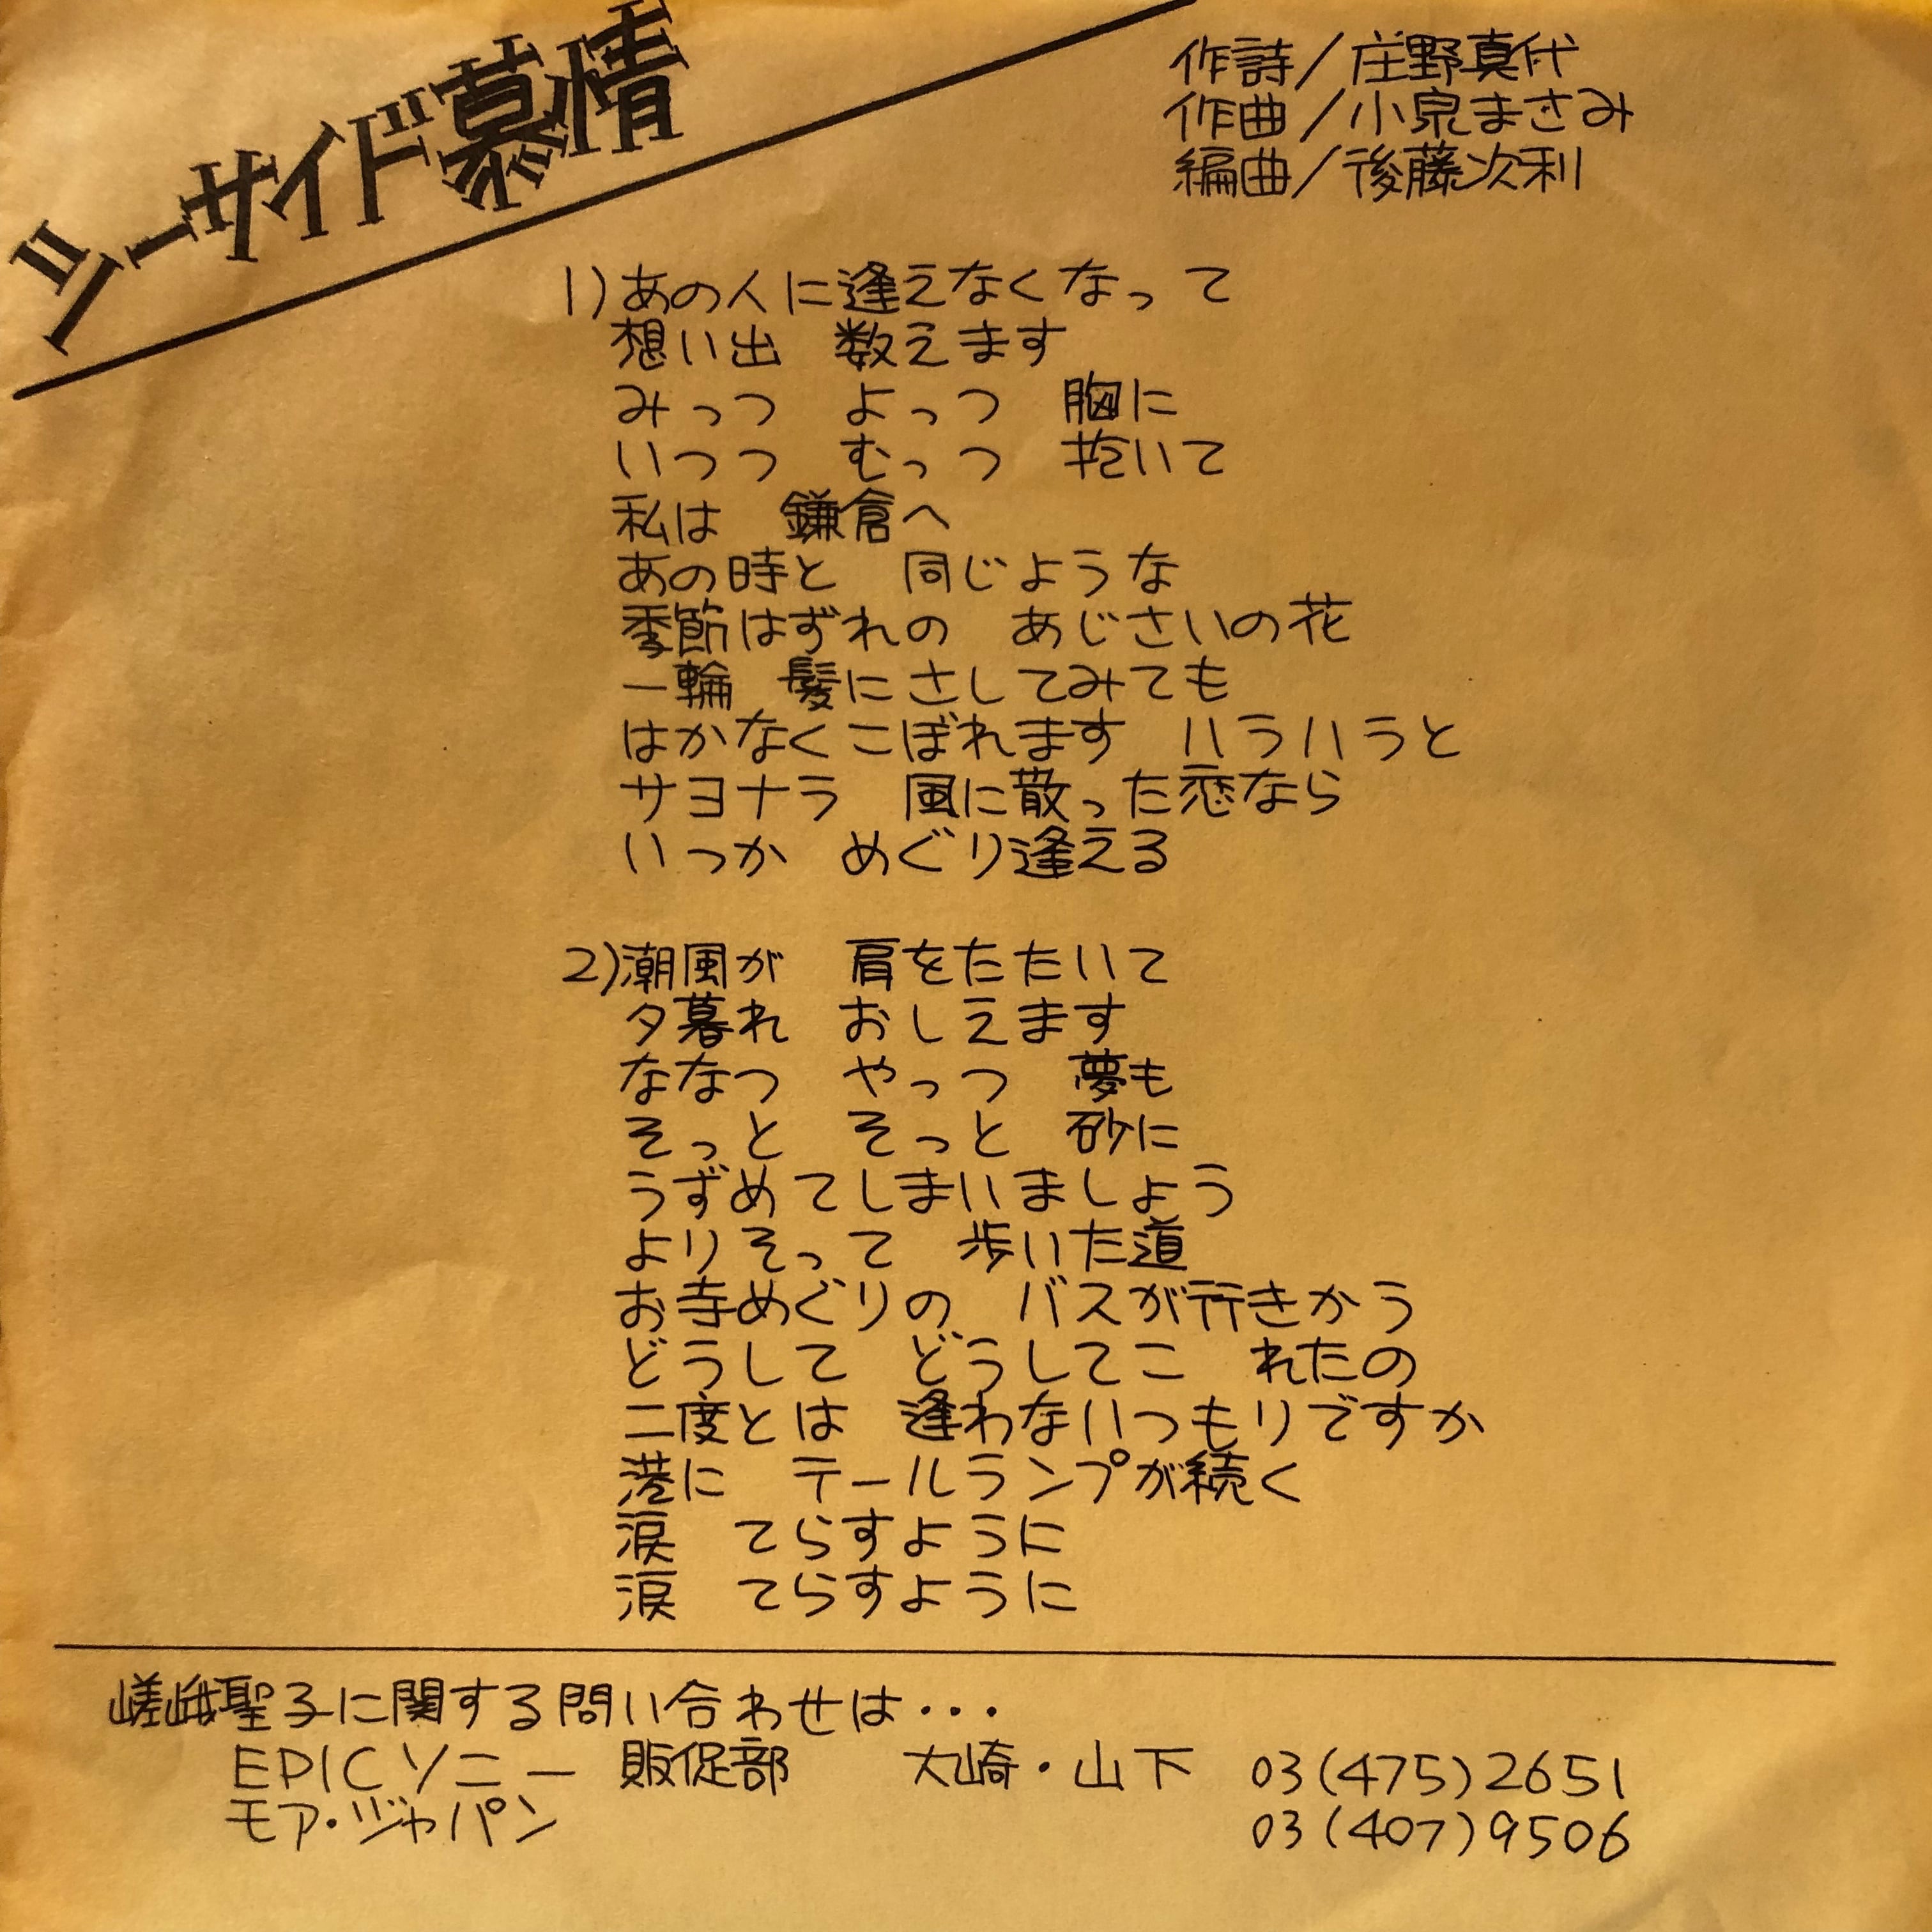 シーサイド慕情
作詩/庄野真代
作曲/小泉まさみ
編曲/後藤次利
1)あの人に逢えなくなって
想い出　数えます
みっつ　よっつ　胸に
いつつ　むっつ　抱いて
私は　鎌倉へ
あの時と　同じような
季節はずれの　あじさいの花
一輪　髪にさしてみても
はかなくこぼれます　ハラハラと
サヨナラ　風に散った恋なら
いっか　めぐり逢える
2)潮風が　肩をたたいて
夕暮れ　おしえます
ななつ　やっつ　夢も
そっと　そっと　砂に
うずめてしまいましょう
よりそって　歩いた道
お寺めぐりの　バスが行きかう
どうして　どうしてこ　れたの
二度とは　逢わないつもりですか
港に　テールランプが続く
涙　てらすように
涙　てらすように
嵯峨聖子に関する問い合わせは・・・
EPICソニー　販促部　大崎・山下　03(475)2651
モア・ジャパン　03(407)9506